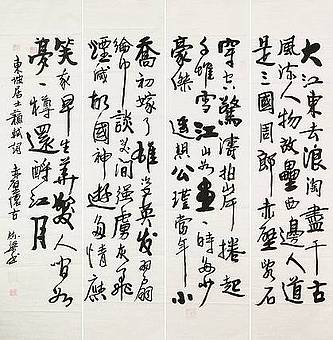 大江東去浪淘盡千古
風流人物故壘西邊人道
是三國周郎赤壁亂石
穿空驚濤拍岸捲起
千堆雪江山如畫一時多少
豪傑遙想公瑾當年小
喬初嫁了雄姿英发羽扇
綸巾談笑間強虜灰飛
煙滅故國神遊多情應
笑我早生華髮人間如
夢一樽還酹江月
東坡居士蘇軾詞 赤壁懷古